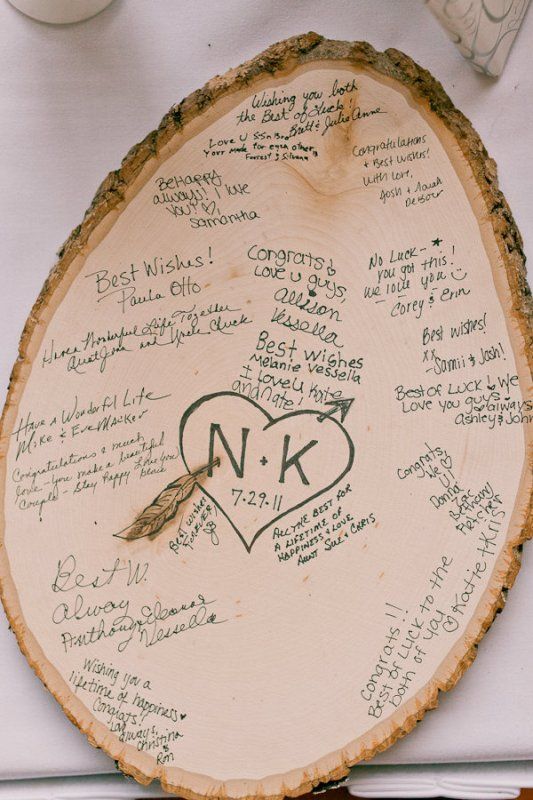 Wishing you both
the Best of Luck!
Brett & Julie Anne
Love U
Your made for each other
Forrest &
Congratulations
+ Best Wishes!
With love,
Josh & Sarah
DeBoer
Be Happy
always! I love
you!
Samantha
Best Wishes!
Paula Otto
Have a Wonderful Life Together
Aunt Jean and Uncle Chuck
Congrats!
Love u guys,
Allison
Vessella
No Luck -
you got this!
we love you!
Corey & Erin
Best Wishes
Melanie Vessella
+ Love U Kate
and Nate!
Best Wishes!
xx
- Samii & Josh!
Best of Luck! We
Love you guys always
Ashley & John
Have a Wonderful Life
Mike & Eve
Congratulations & much
love - you make a beautiful
couple - Stay Happy Love you
N + K
7.29.11
Best wishes
FOREVER!
JB
All the best for
a lifetime of
happiness & love
Aunt Sue & Chris
Congrats
We
Donna
Bethany
Fletcher
Best W.
alway
Anthony & Eleanor
Vessella
Wishing you a
lifetime of happiness
Congrats!!
always,
Christina
&
Ron
congrats!!
Best of Luck to the
both of you
Katie + Kri